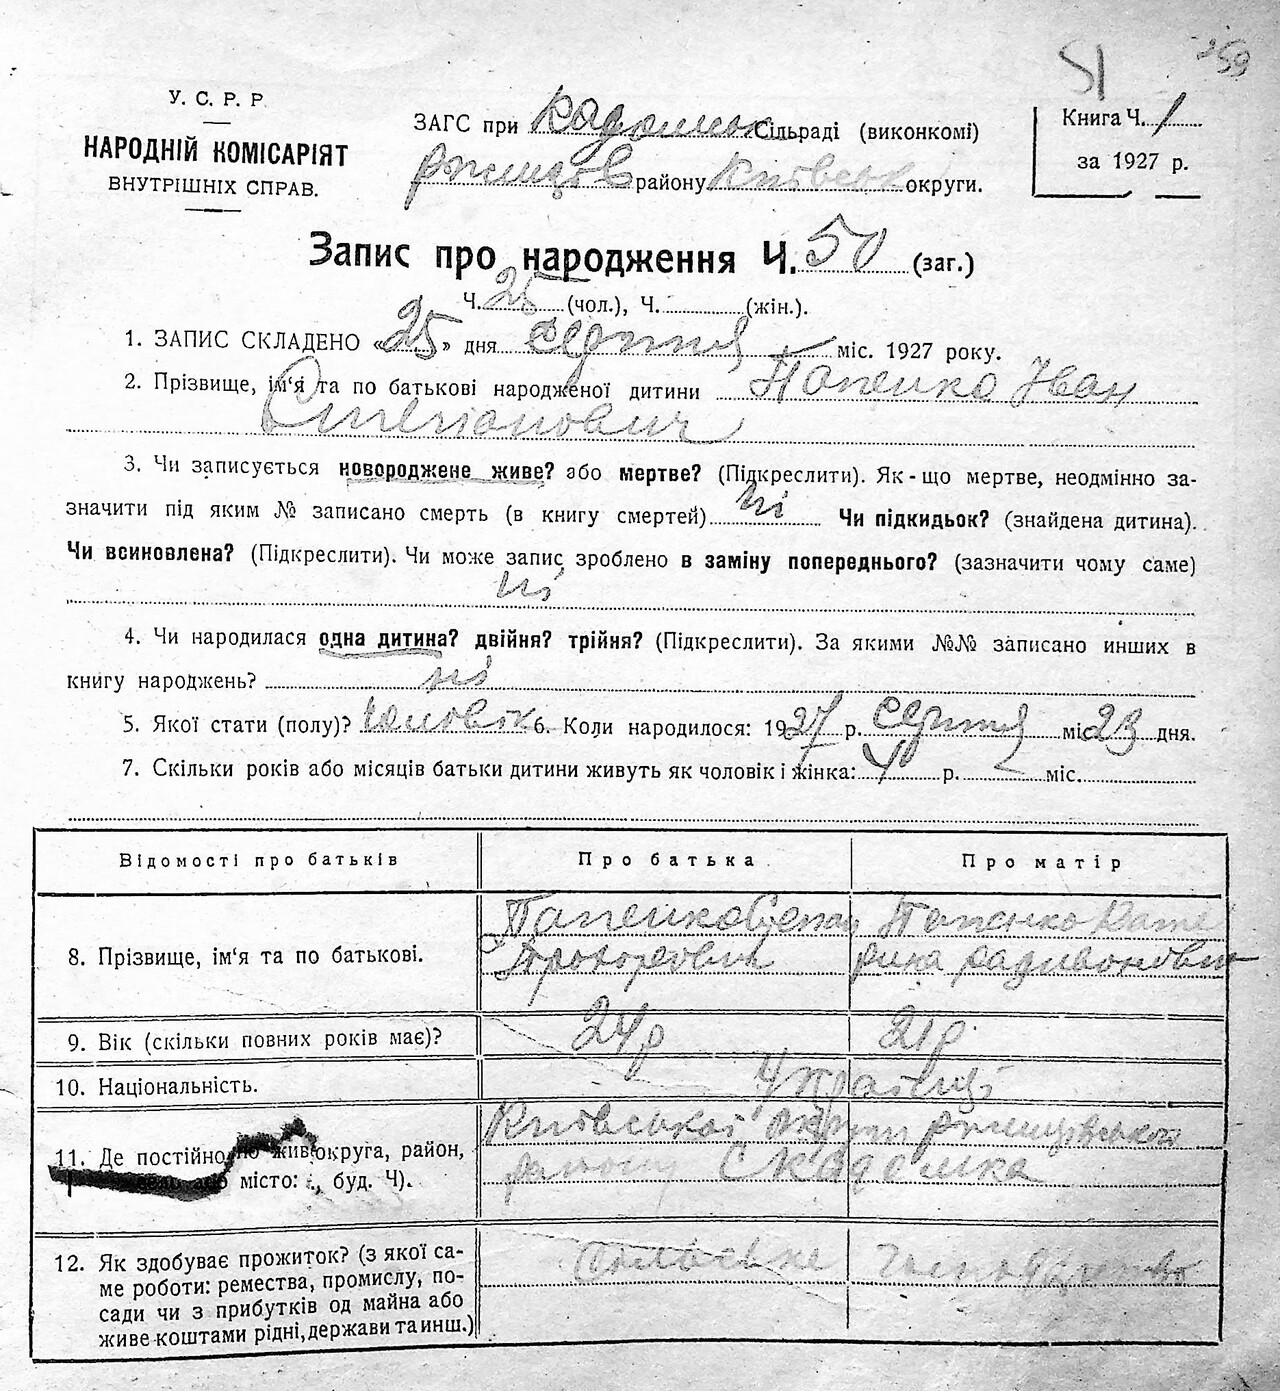 51
259
У. С. Р. Р.
НАРОДНІЙ КОМІСАРІЯТ
ВНУТРІШНІХ СПРАВ.
ЗАГС при Кадомськ Сільраді (виконкомі)
Ржищів району Київськ округи.
Книга Ч. 1
за 1927 р.
Запис про народження Ч. 50 (заг.)
Ч. 25 (чол.), Ч. (жін.).
1. ЗАПИС СКЛАДЕНО «25» дня серпня міс. 1927 року.
2. Прізвище, ім‘я та по батькові народженої дитини Папенко Іван
Степанович
3. Чи записується новороджене живе? або мертве? (Підкреслити). Як-що мертве, неодмінно за-
значити під яким № записано смерть (в книгу смертей) ні Чи підкидьок? (знайдена дитина).
Чи всиновлена? (Підкреслити). Чи може запис зроблено в заміну попереднього? (зазначити чому саме)
ні
4. Чи народилася одна дитина? двійня? трійня? (Підкреслити). За якими №№ записано инших в
книгу народжень? ні
5. Якої стати (полу)? чоловік 6. Коли народилося: 1927 р. серпня міс 23 дня.
7. Скільки років або місяців батьки дитини живуть як чоловік і жінка: 4 р. міс.
Відомості про батьків Про батька Про матір
8. Прізвище, ім‘я та по батькові. Папенко Степан Прохорович Папенко Кате
рина
9. Вік (скільки повних років має)? 24 р 21 р.
10. Національність. Українці
11. Де постійно жив округа, район, Київської округи Ржищівського
місто: , буд. Ч). району С Кадомка
12. Як здобуває прожиток? (з якої са- Сільське господарство
ме роботи: ремества, промислу, по-
сади чи з прибутків од майна або
живе коштами рідні, держави та инш.)